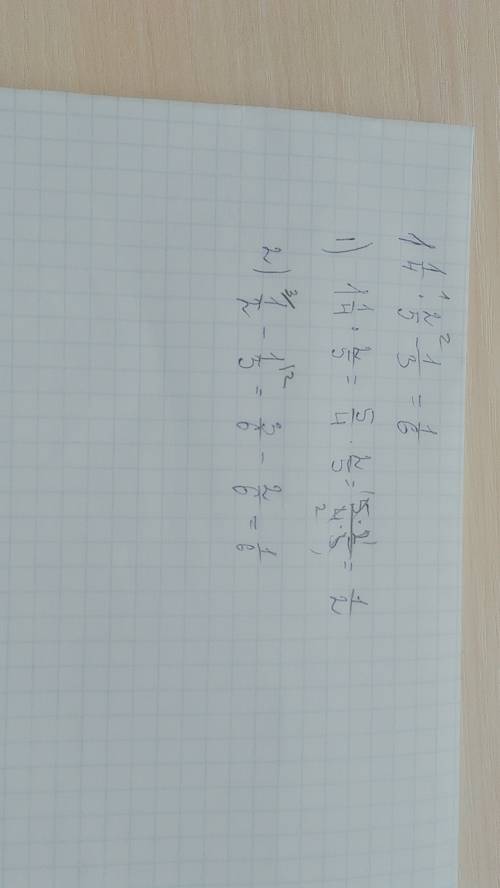 1 1/4 ·¹ 2/5 -² 1/3 = 1/6
1) 1 1/4 · 2/5 = 5/4 · 2/5 = 5·2/4·5 = 1/2
2) 1/2 - 1/3 = 3/6 - 2/6 = 1/6